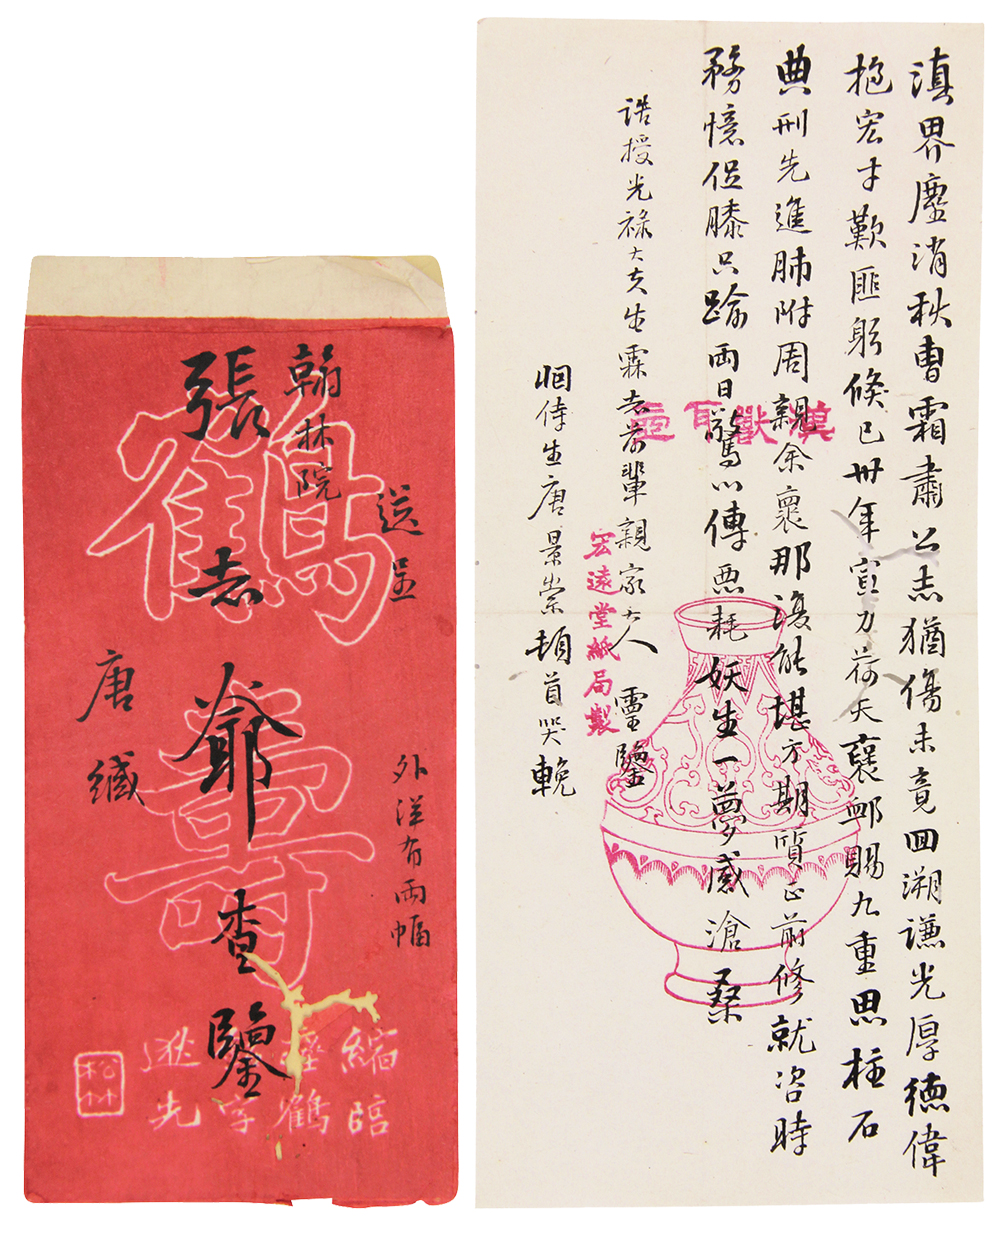 滇界塵消秋曹霜肅公志猶傷未竟回溯謙光厚德偉
抱宏才歎匪躬倏已卅年宣力荷天褒卹賜九重思柱石
典刑先進肺附周親余褱那復能堪方期質正前修就咨時
務憶促膝只踰兩日驚心傳惡耗妖生一夢感滄桑
誥授光祿大夫生霖志前輩親家大人 靈鑒
姻侍生唐景崇頓首哭輓
漢獸耳壺
宏遠堂紙局製
外洋布兩幅
送呈
翰林院
張志爺查鑒
唐緘
鶴壽
縮臨
瘞鶴
字
先
松竹